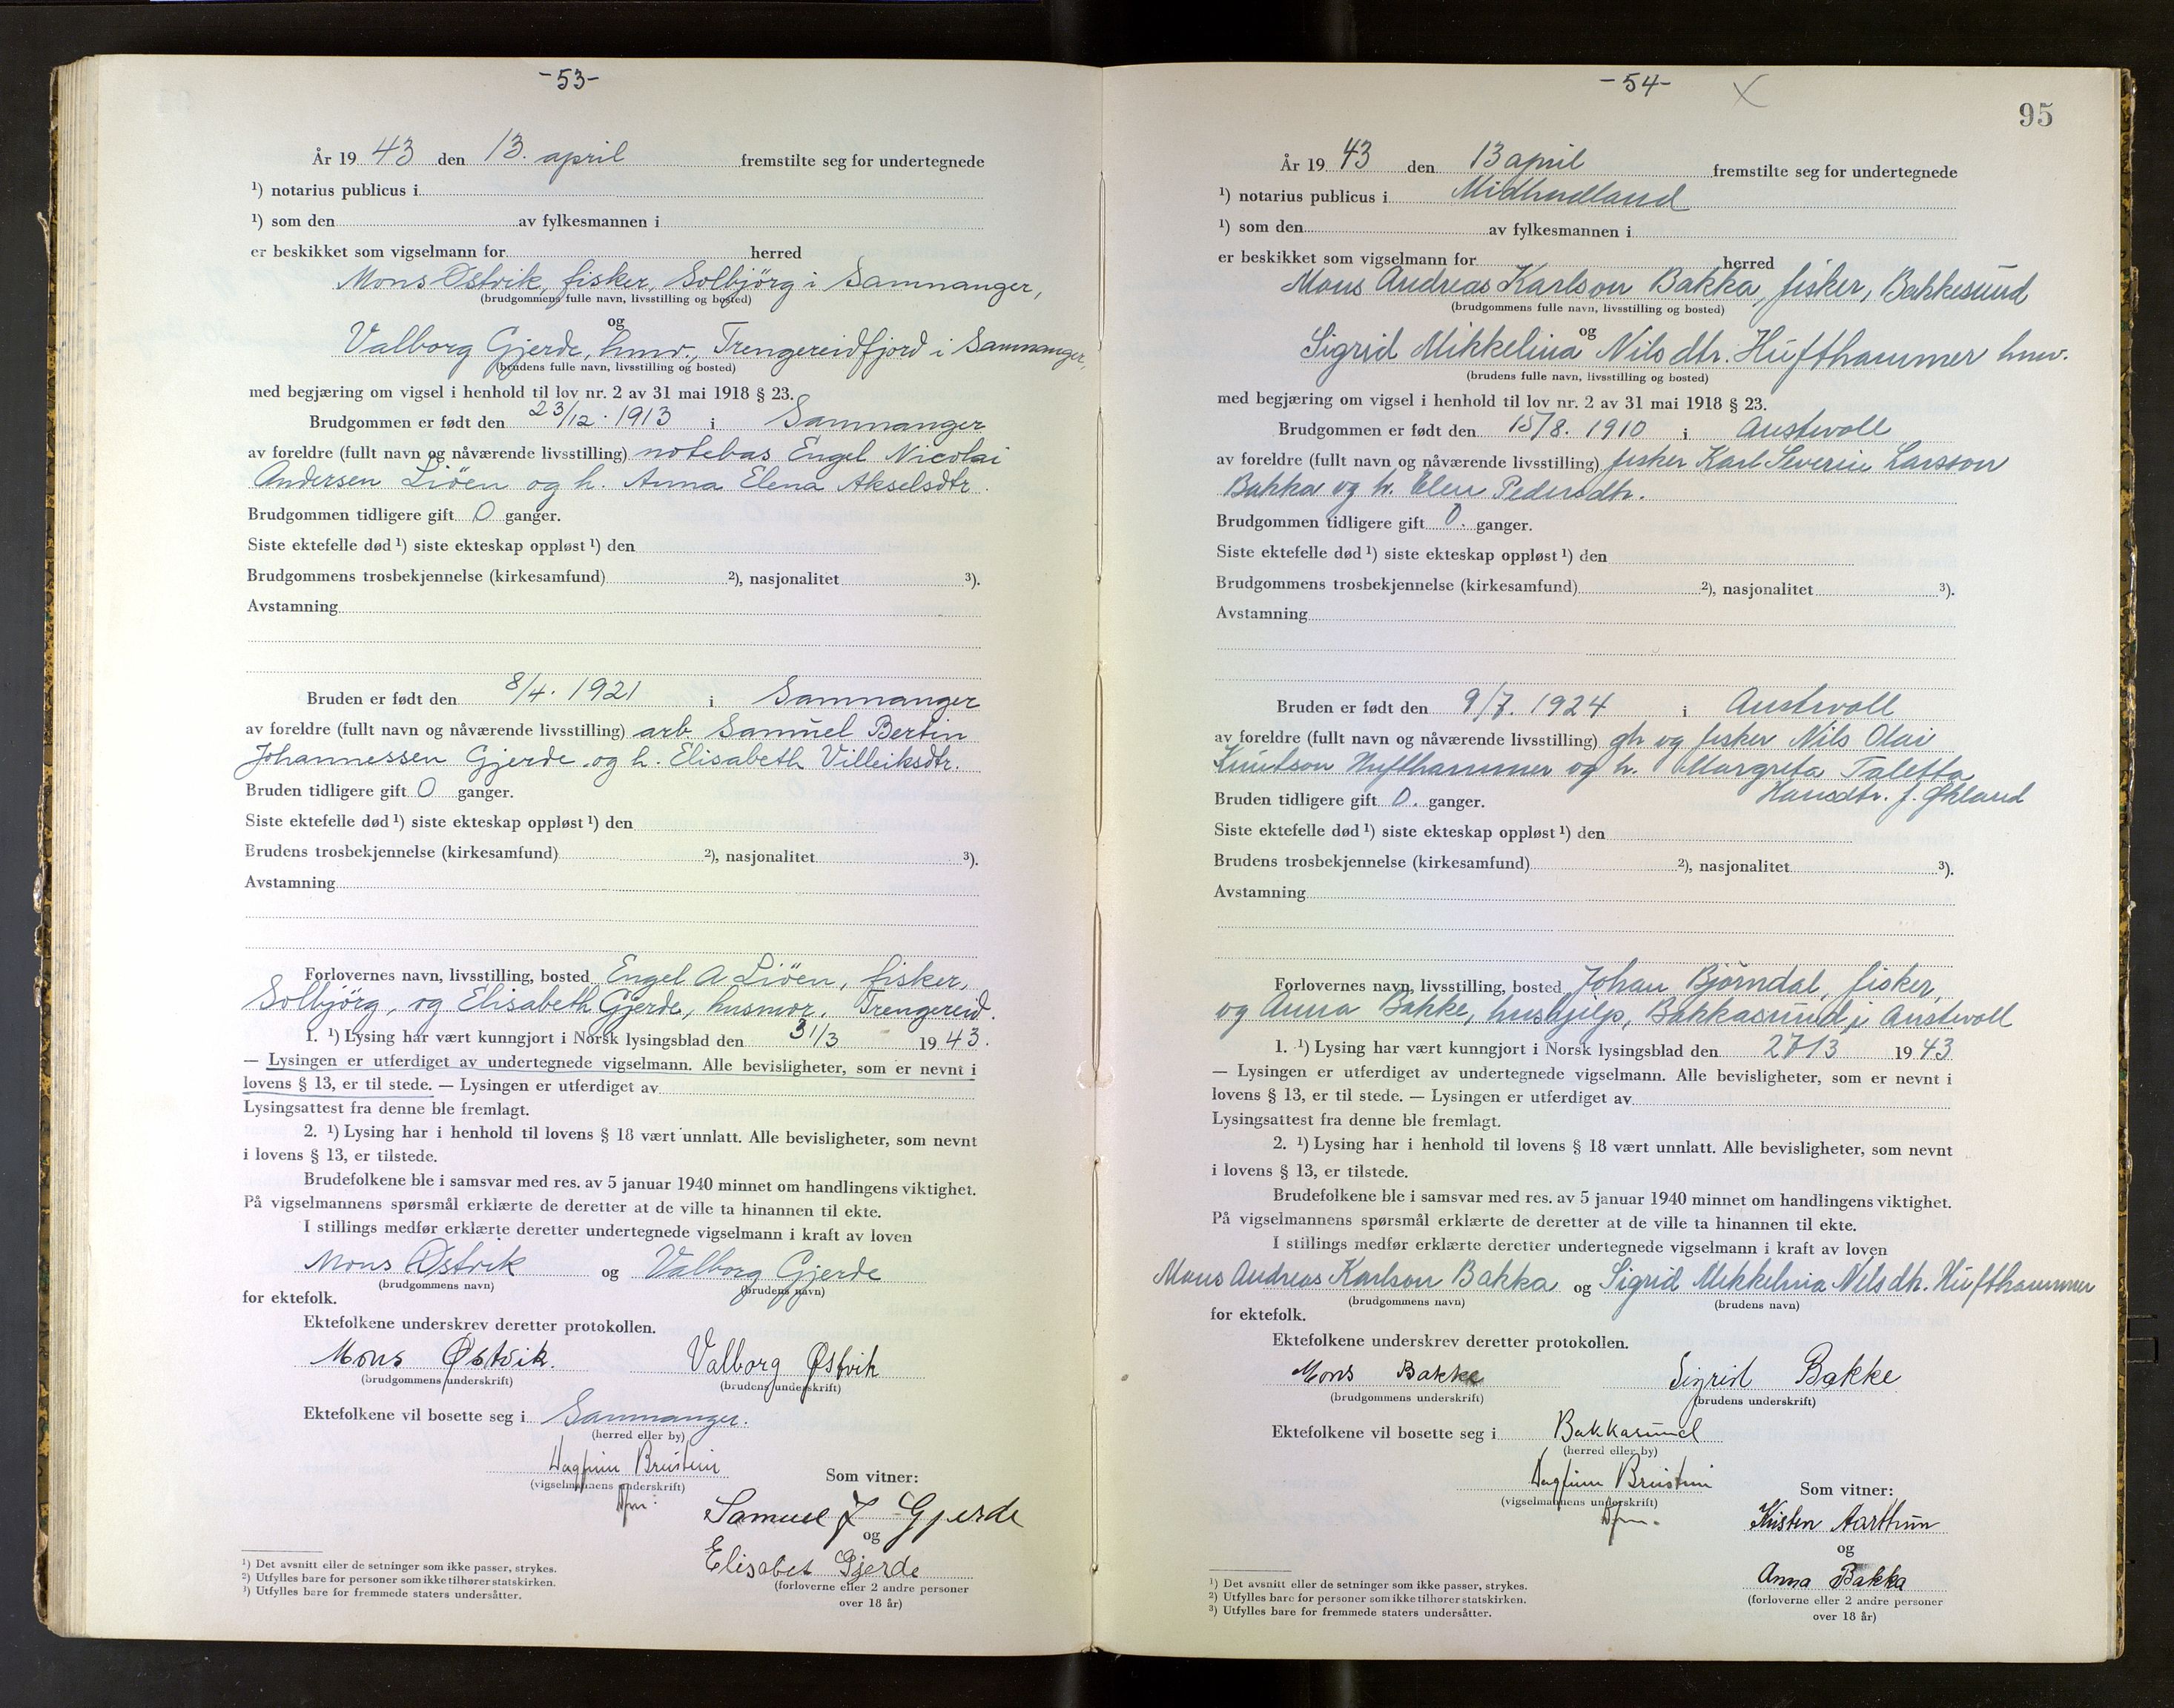 -53-
År 19 43 den 13. april fremstilte seg for undertegnede
¹) notarius publicus i
¹) som den av fylkesmannen i
er beskikket som vigselmann for herred
Mons Østvik, fisker, Solbjörg i Samnanger,
(brudgommens fulle navn, livsstilling og bosted)
og
Valborg Gjerde, hmv., Trengereidfjord i Samnanger,
(brudens fulle navn, livsstilling og bosted)
med begjæring om vigsel i henhold til lov nr. 2 av 31 mai 1918 § 23.
Brudgommen er født den 23/12. 1913 i Samnanger
av foreldre (fullt navn og nåværende livsstilling) notebas Engel Nicolai
Andersen Liöen og h. Anna Elena Akselsdtr.
Brudgommen tidligere gift 0 ganger.
Siste ektefelle død ¹) siste ekteskap oppløst ¹) den
Brudgommens trosbekjennelse (kirkesamfund) ²), nasjonalitet ³).
Avstamning
Bruden er født den 8/4. 1921 i Samnanger
av foreldre (fullt navn og nåværende livsstilling) arb. Samuel Bertin
Johannessen Gjerde og h. Elisabeth Villeiksdtr.
Bruden tidligere gift 0 ganger.
Siste ektefelle død ¹) siste ekteskap oppløst ¹) den
Brudens trosbekjennelse (kirkesamfund) ²), nasjonalitet ³).
Avstamning
Forlovernes navn, livsstilling, bosted Engel A Liöen, fisker,
Solbjörg, og Elisabeth Gjerde, husmor, Trengereid.
1. ¹) Lysing har vært kunngjort i Norsk lysingsblad den 31/3 19 43.
— Lysingen er utferdiget av undertegnede vigselmann. Alle bevisligheter, som er nevnt i
lovens § 13, er til stede. — Lysingen er utferdiget av
Lysingsattest fra denne ble fremlagt.
2. ¹) Lysing har i henhold til lovens § 18 vært unnlatt. Alle bevisligheter, som nevnt
i lovens § 13, er tilstede.
Brudefolkene ble i samsvar med res. av 5 januar 1940 minnet om handlingens viktighet.
På vigselmannens spørsmål erklærte de deretter at de ville ta hinannen til ekte.
I stillings medfør erklærte deretter undertegnede vigselmann i kraft av loven
Mons Østvik og Valborg Gjerde
(brudgommens navn) (brudens navn)
for ektefolk.
Ektefolkene underskrev deretter protokollen.
Mons Østvik. Valborg Østvik
(brudgommens underskrift) (brudens underskrift)
Ektefolkene vil bosette seg i Samnanger.
(herred eller by)
Dagfinn
(vigselmannens underskrift) Som vitner:
Samuel J Gjerde
og
Elisabet Gjerde
(forloverne eller 2 andre personer
over 18 år)
¹) Det avsnitt eller de setninger som ikke passer, strykes.
²) Utfylles bare for personer som ikke tilhører statskirken.
³) Utfylles bare for fremmede staters undersåtter.
-54-
95
År 19 43 den 13 april fremstilte seg for undertegnede
¹) notarius publicus i Midhordland
¹) som den av fylkesmannen i
er beskikket som vigselmann for herred
Mons Andreas Karlson Bakka, fisker, Bakkesund
(brudgommens fulle navn, livsstilling og bosted)
og
Sigrid Mikkelina Nilsdtr. Hufthammer hmv.
(brudens fulle navn, livsstilling og bosted)
med begjæring om vigsel i henhold til lov nr. 2 av 31 mai 1918 § 23.
Brudgommen er født den 15/8. 1910 i Austevoll
av foreldre (fullt navn og nåværende livsstilling) fisker Karl Severin Larsson
Bakka og h. Elen Pedersdtr.
Brudgommen tidligere gift 0. ganger.
Siste ektefelle død ¹) siste ekteskap oppløst ¹) den
Brudgommens trosbekjennelse (kirkesamfund) ²), nasjonalitet ³).
Avstamning
Bruden er født den 9/7. 1924 i Austevoll
av foreldre (fullt navn og nåværende livsstilling) gbr og fisker Nils Olai
Knutson Hufthammer og h. Margreta Taletta
Hansdtr. f. Økland
Bruden tidligere gift 0. ganger.
Siste ektefelle død ¹) siste ekteskap oppløst ¹) den
Brudens trosbekjennelse (kirkesamfund) ²), nasjonalitet ³).
Avstamning
Forlovernes navn, livsstilling, bosted Johan Björndal, fisker,
og Anna Bakke, hushjelp, Bakkasund i Austevoll
1. ¹) Lysing har vært kunngjort i Norsk lysingsblad den 27/3 19 43
— Lysingen er utferdiget av undertegnede vigselmann. Alle bevisligheter, som er nevnt i
lovens § 13, er til stede. — Lysingen er utferdiget av
Lysingsattest fra denne ble fremlagt.
2. ¹) Lysing har i henhold til lovens § 18 vært unnlatt. Alle bevisligheter, som nevnt
i lovens § 13, er tilstede.
Brudefolkene ble i samsvar med res. av 5 januar 1940 minnet om handlingens viktighet.
På vigselmannens spørsmål erklærte de deretter at de ville ta hinannen til ekte.
I stillings medfør erklærte deretter undertegnede vigselmann i kraft av loven
Mons Andreas Karlson Bakka og Sigrid Mikkelina Nilsdtr. Hufthammer
(brudgommens navn) (brudens navn)
for ektefolk.
Ektefolkene underskrev deretter protokollen.
Mons Bakke Sigrid Bakke
(brudgommens underskrift) (brudens underskrift)
Ektefolkene vil bosette seg i Bakkasund
(herred eller by)
Dagfinn
(vigselmannens underskrift) Som vitner:
Kristen Aarthun
og
Anna Bakka
(forloverne eller 2 andre personer
over 18 år)
¹) Det avsnitt eller de setninger som ikke passer, strykes.
²) Utfylles bare for personer som ikke tilhører statskirken.
³) Utfylles bare for fremmede staters undersåtter.